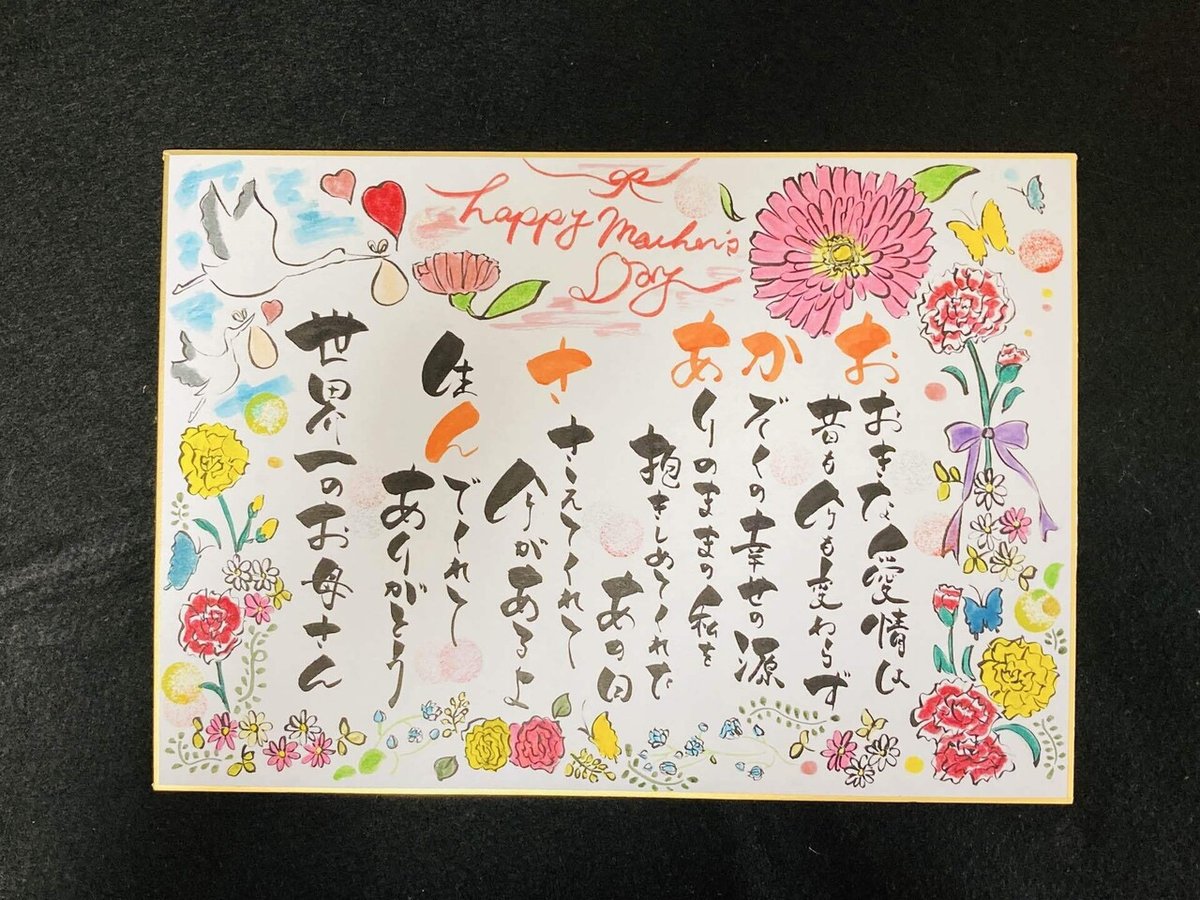 happy Mother's
Day
おおきな愛情は
昔も今も変わらず
かぞくの幸せの源
ありのままの私を
抱きしめてくれた
あの日
ささえてくれて
今があるよ
生んでくれて
ありがとう
世界一のお母さん